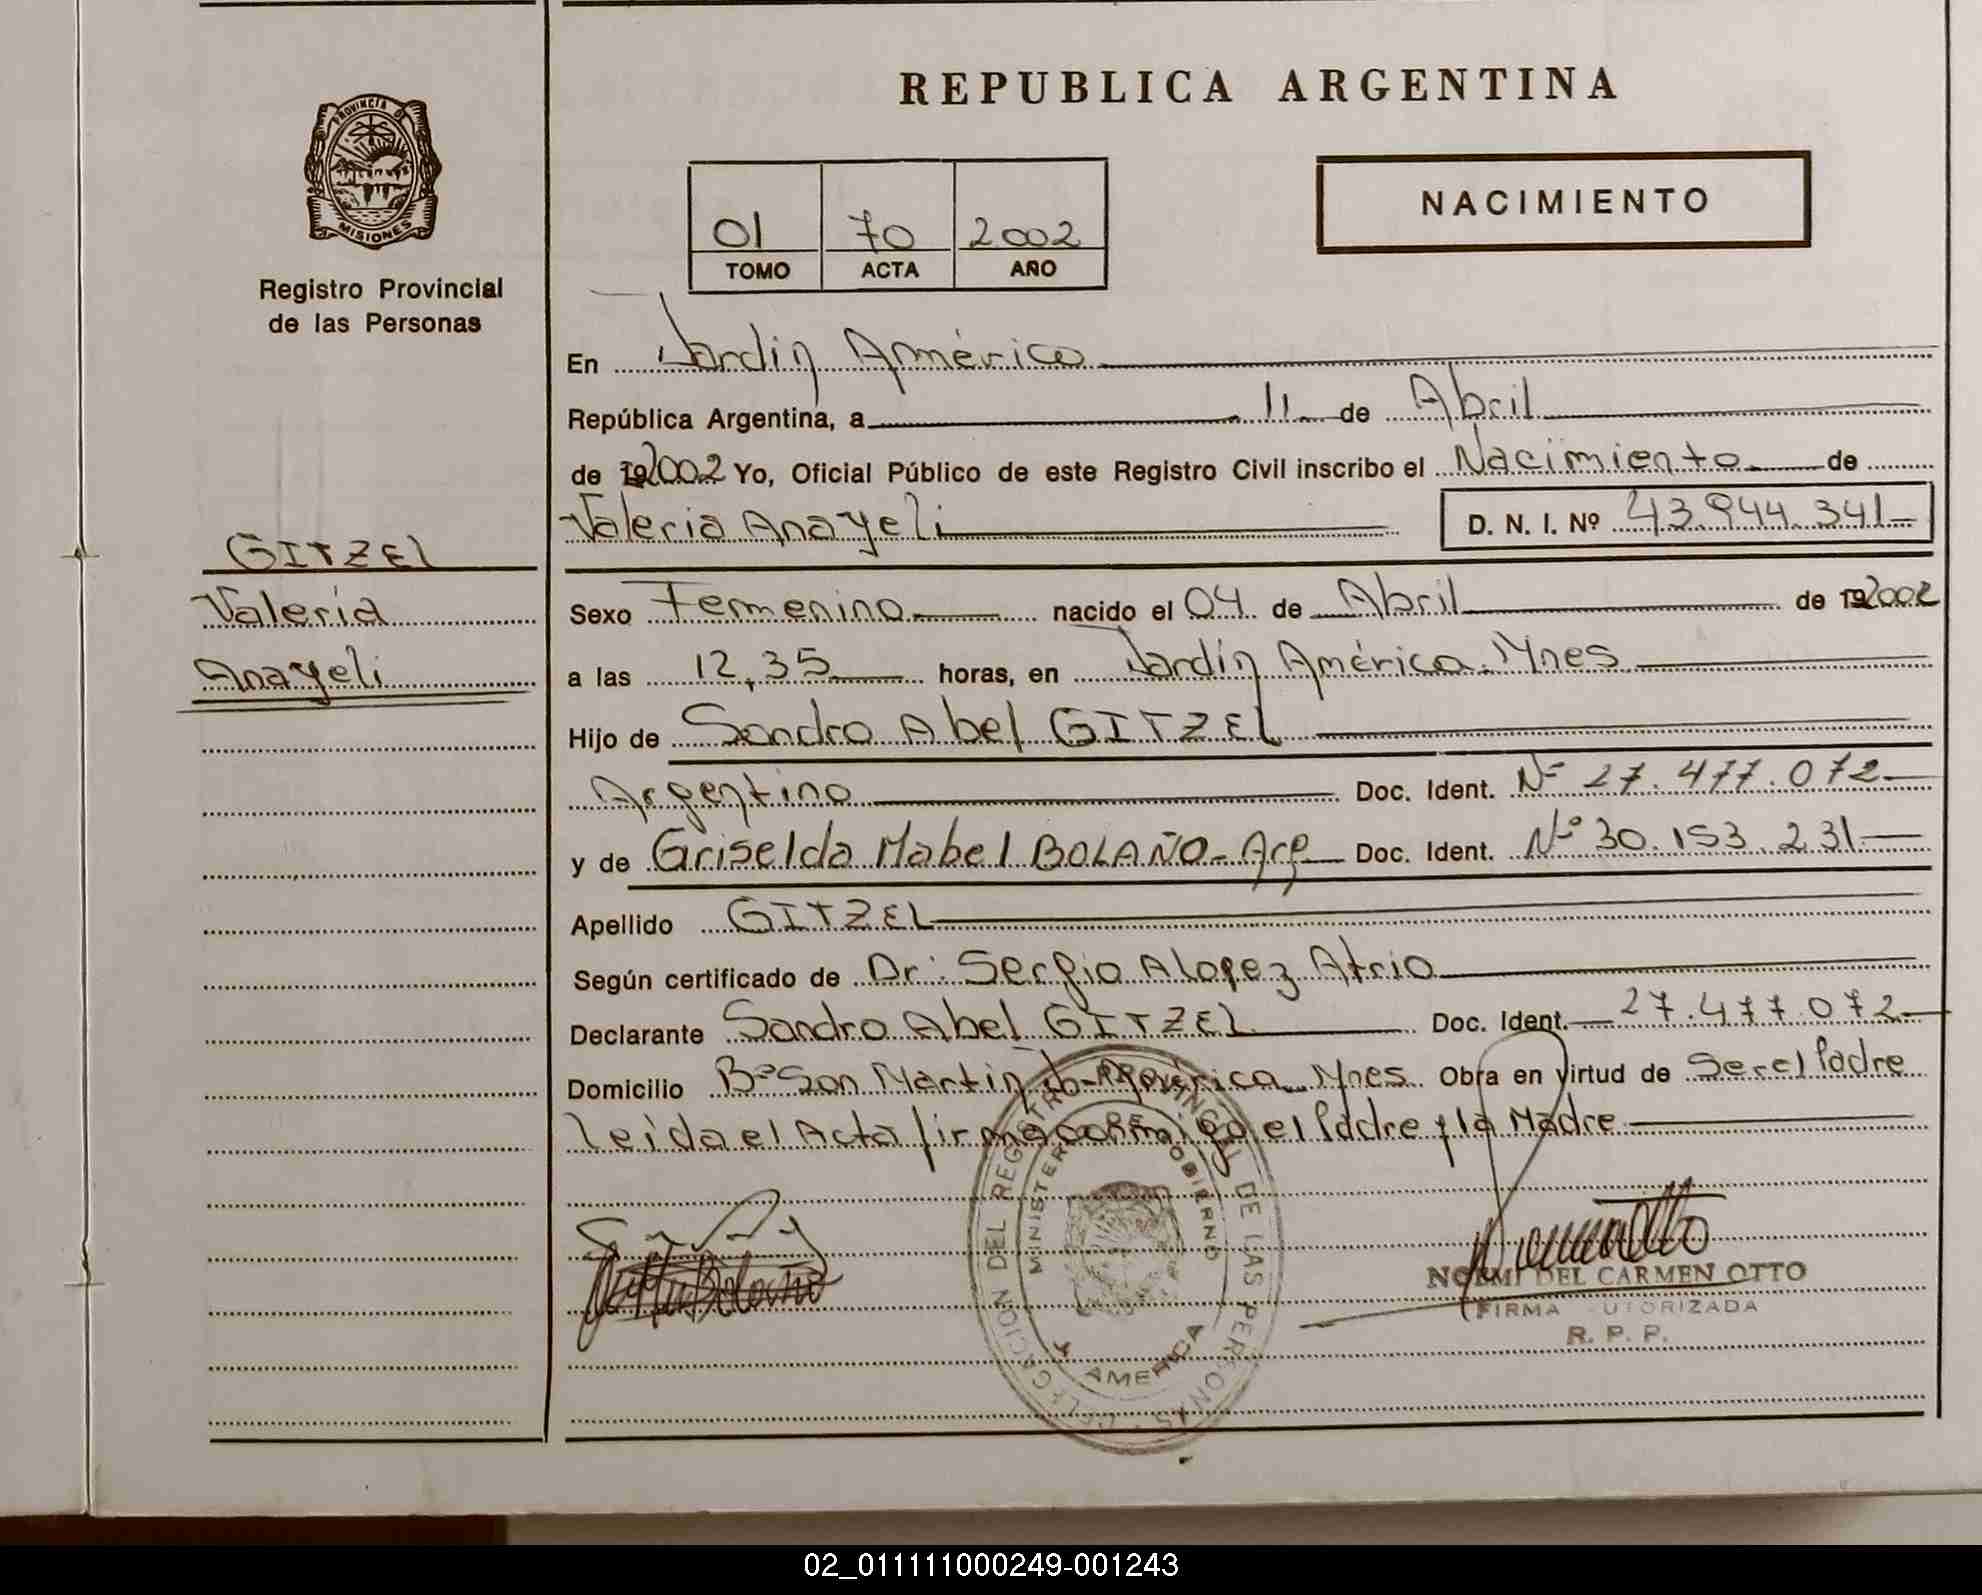 REPUBLICA ARGENTINA
PROVINCIA DE MISIONES
Registro Provincial
de las Personas
01 70 2002
TOMO ACTA AÑO
NACIMIENTO
En Jardín América
República Argentina, a 11 de Abril
de 192002 Yo, Oficial Público de este Registro Civil inscribo el Nacimiento de
Valeria Anayeli D. N. I. Nº 43.944.341
GITZEL
Valeria
Anayeli
Sexo Femenino nacido el 04 de Abril de 192002
a las 12,35 horas, en Jardín América Mnes
Hijo de Sandro Abel GITZEL
Argentino Doc. Ident. Nº 27.477.072
y de Griselda Mabel BOLAÑO - Arg Doc. Ident. Nº 30.153.231
Apellido GITZEL
Según certificado de Dr: Sergio A Lopez Atrio
Declarante Sandro Abel GITZEL Doc. Ident. 27.477.072
Domicilio Bº San Martín J. América Mnes Obra en virtud de Ser el Padre
Leida el Acta firma conmigo el Padre y la Madre
DELEGACION DEL REGISTRO PROVINCIAL DE LAS PERSONAS
MINISTERIO DE GOBIERNO
AMERICA
NOEMI DEL CARMEN OTTO
FIRMA AUTORIZADA
R. P. P.
02_011111000249-001243